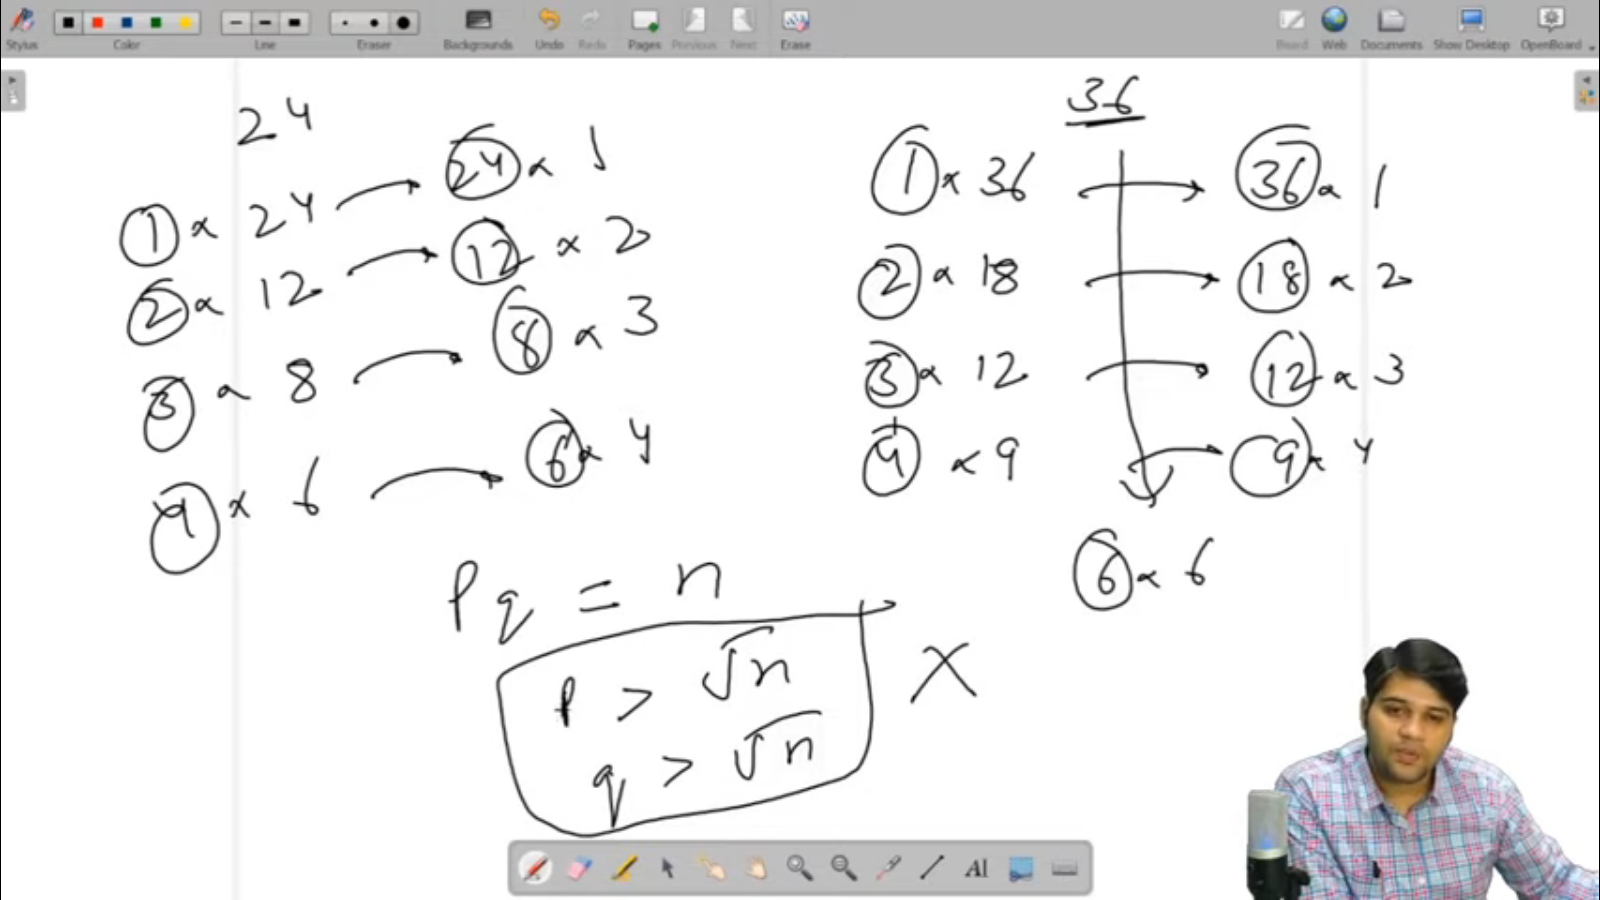 Stylus Color Line Eraser Backgrounds Undo Redo Pages Previous Next Erase Board Web Documents Show Desktop OpenBoard
24
1 × 24 → 24 × 1
2 × 12 → 12 × 2
3 × 8 → 8 × 3
4 × 6 → 6 × 4
36
1 × 36 → 36 × 1
2 × 18 → 18 × 2
3 × 12 → 12 × 3
4 × 9 → 9 × 4
6 × 6
Pq = n
P > √n
q > √n
X
AI